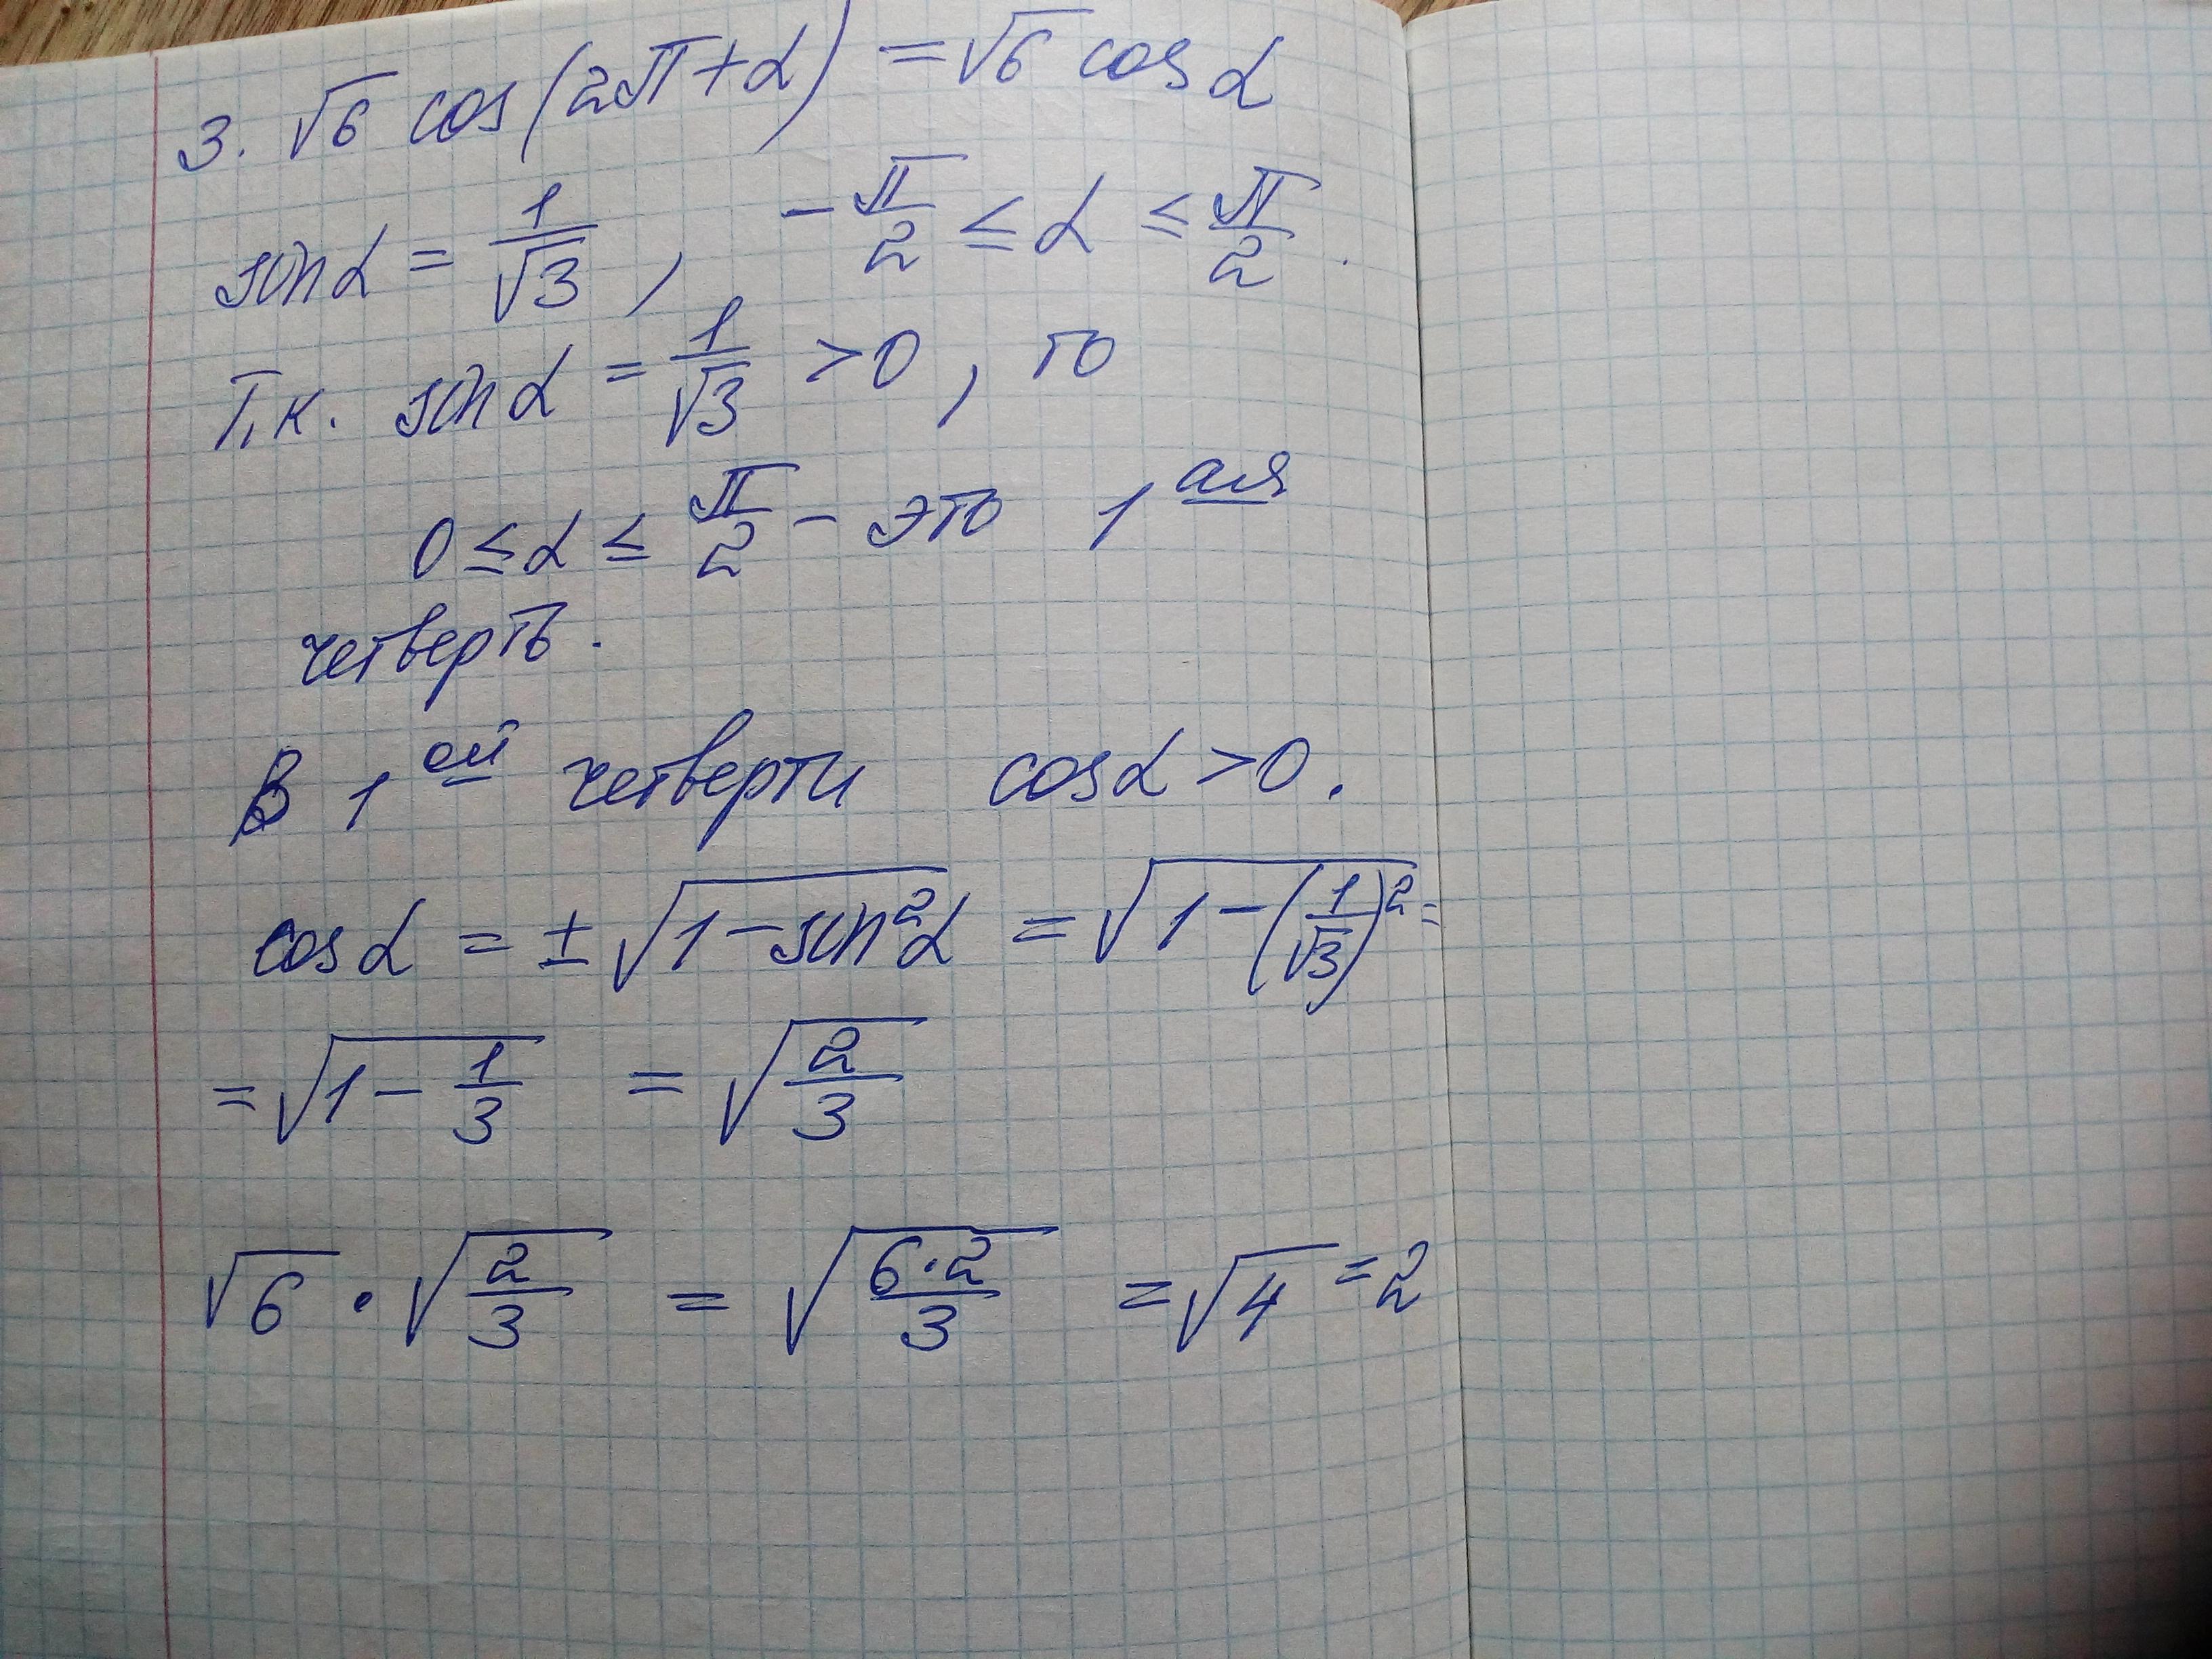 3. √6 cos(2π+α) = √6 cos α
sin α = 1/√3 , -π/2 ≤ α ≤ π/2 .
Т.к. sin α = 1/√3 > 0 , то
0 ≤ α ≤ π/2 - это 1ая
четверть.
В 1ой четверти cos α > 0 .
cos α = ± √(1 - sin²α) = √(1 - (1/√3)²) =
= √(1 - 1/3) = √(2/3)
√6 · √(2/3) = √(6·2/3) = √4 = 2